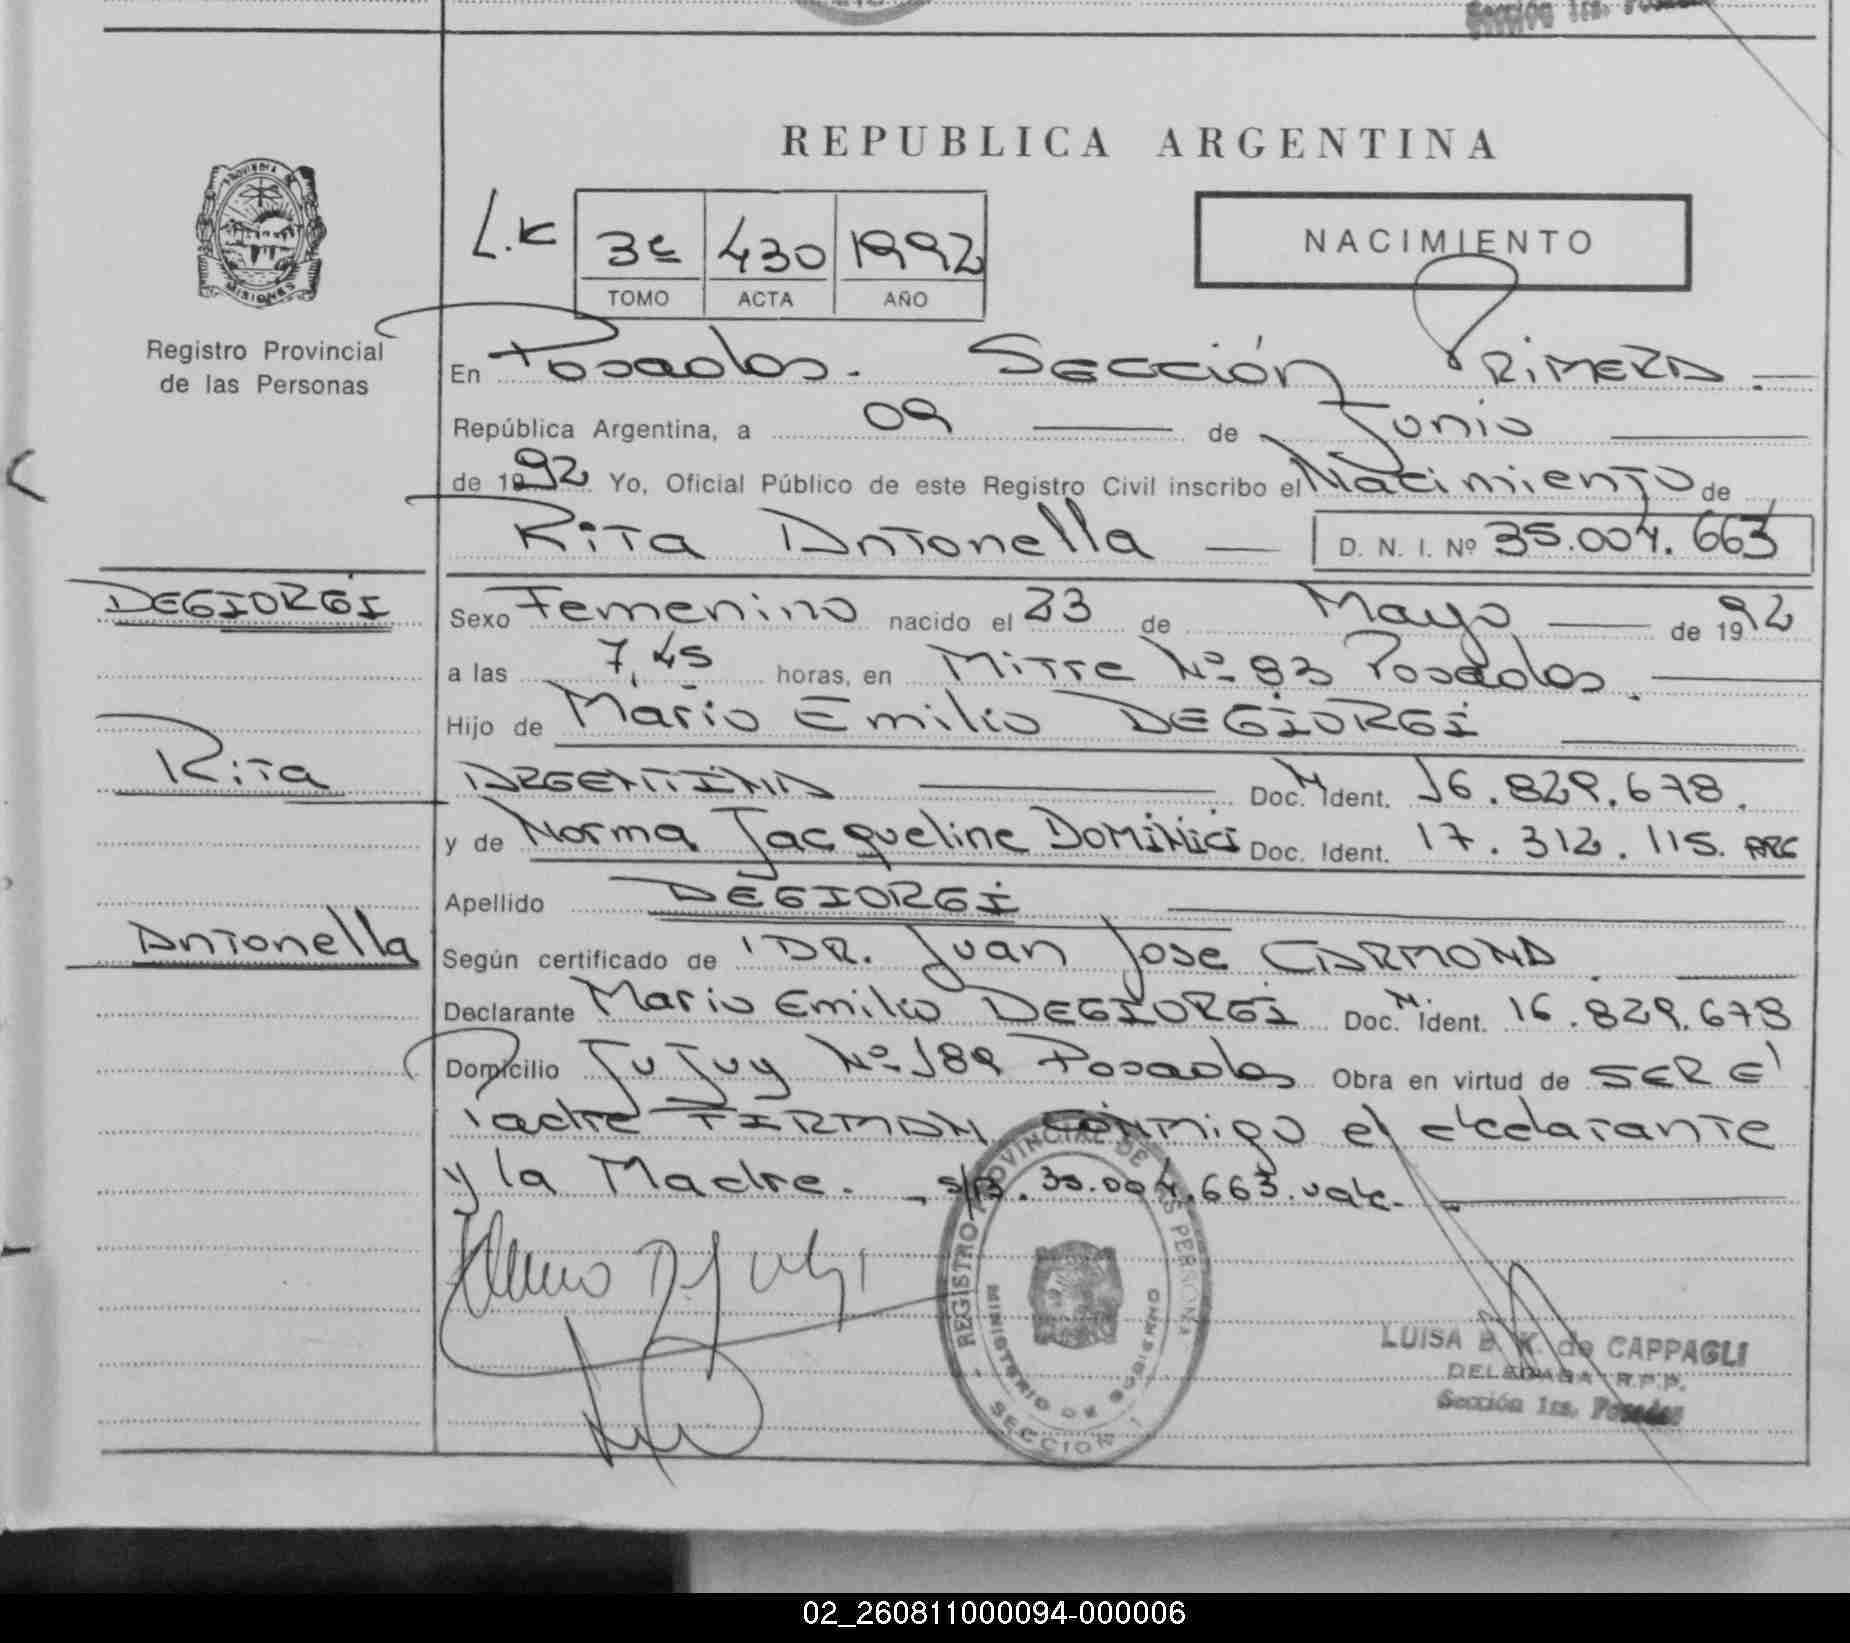 Sección 1ra. Posadas
REPUBLICA ARGENTINA
PROVINCIA DE
MISIONES
Registro Provincial
de las Personas
L.K 3º 430 1992
TOMO ACTA AÑO
NACIMIENTO
En Posadas. Sección PRIMERA.
República Argentina, a 09 de Junio
de 1992 Yo, Oficial Público de este Registro Civil inscribo el Nacimiento de
Rita Antonella D. N. I. Nº 35.004.663
DEGIORGI
Sexo Femenino nacido el 23 de Mayo de 1992
a las 7,45 horas, en Mitre Nº 83 Posadas.
Hijo de Mario Emilio DEGIORGI
Rita
ARGENTINA Doc. N Ident. 16.829.678.
y de Norma Jacqueline DOMINICI Doc. Ident. 17.312.115. ARG
Apellido DEGIORGI
Antonella
Según certificado de DR. Juan Jose CARMONA.
Declarante Mario Emilio DEGIORGI Doc. N. Ident. 16.829.678
Domicilio Jujuy Nº 189 Posadas Obra en virtud de SER El
Padre FIRMAN conmigo el declarante
y la Madre. - s/r. 35.004.663. vale.-
REGISTRO PROVINCIAL DE LAS PERSONAS
MINISTERIO DE GOBIERNO
SECCION 1
LUISA B. K. de CAPPAGLI
DELEGADA R.P.P.
Sección 1ra. Posadas
02_260811000094-000006